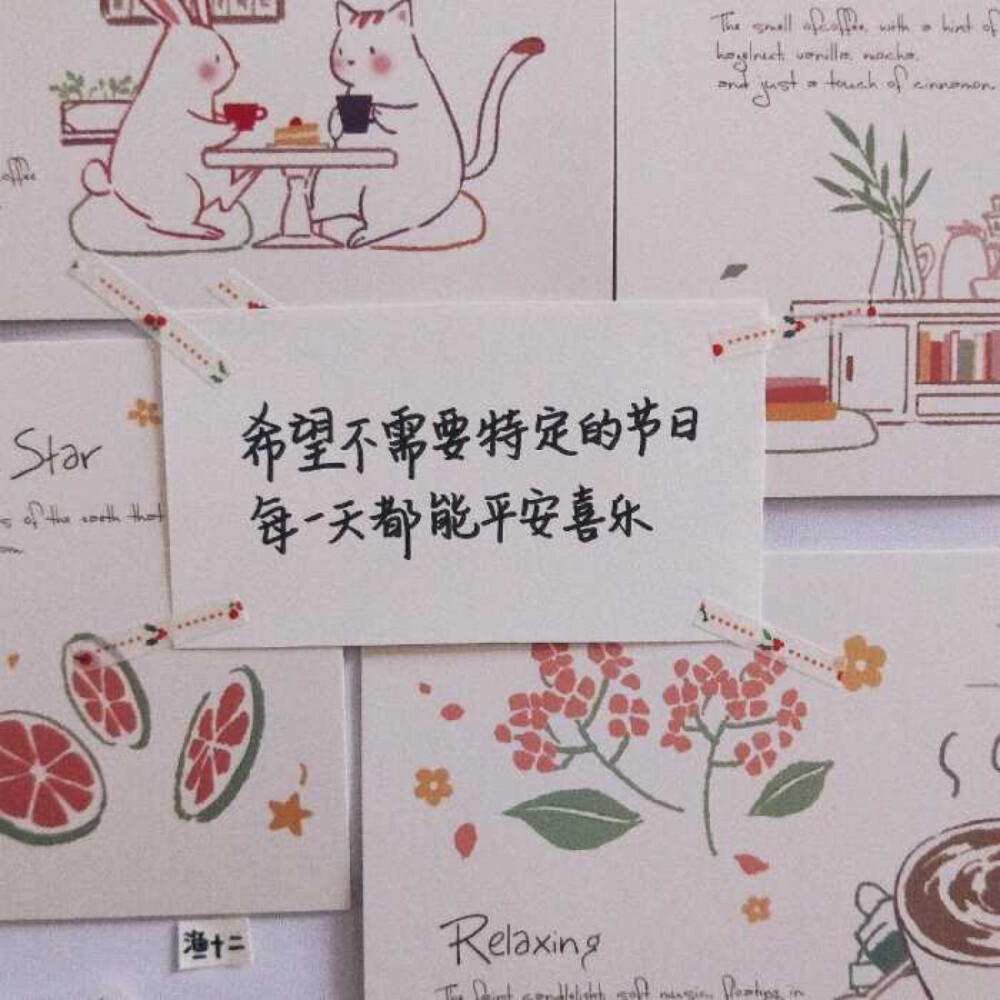 The smell of coffee, with a hint of
hazelnut, vanilla, mocha,
and just a touch of cinnamon
coffee
希望不需要特定的节日
每一天都能平安喜乐
Star
s of the earth that
渔十二
Relaxing
The faint candlelight, soft music floating in